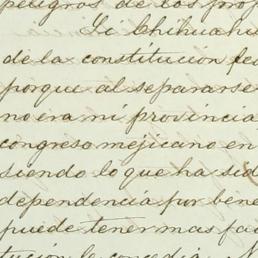 peligros de los prop
Si Chihuahu
de la constitucion fe
porque al separarse
no era ni provincia
congreso mejicano en
siendo lo que ha sid
dependencia por bene
puede tener mas fac
tucion le concedia. N